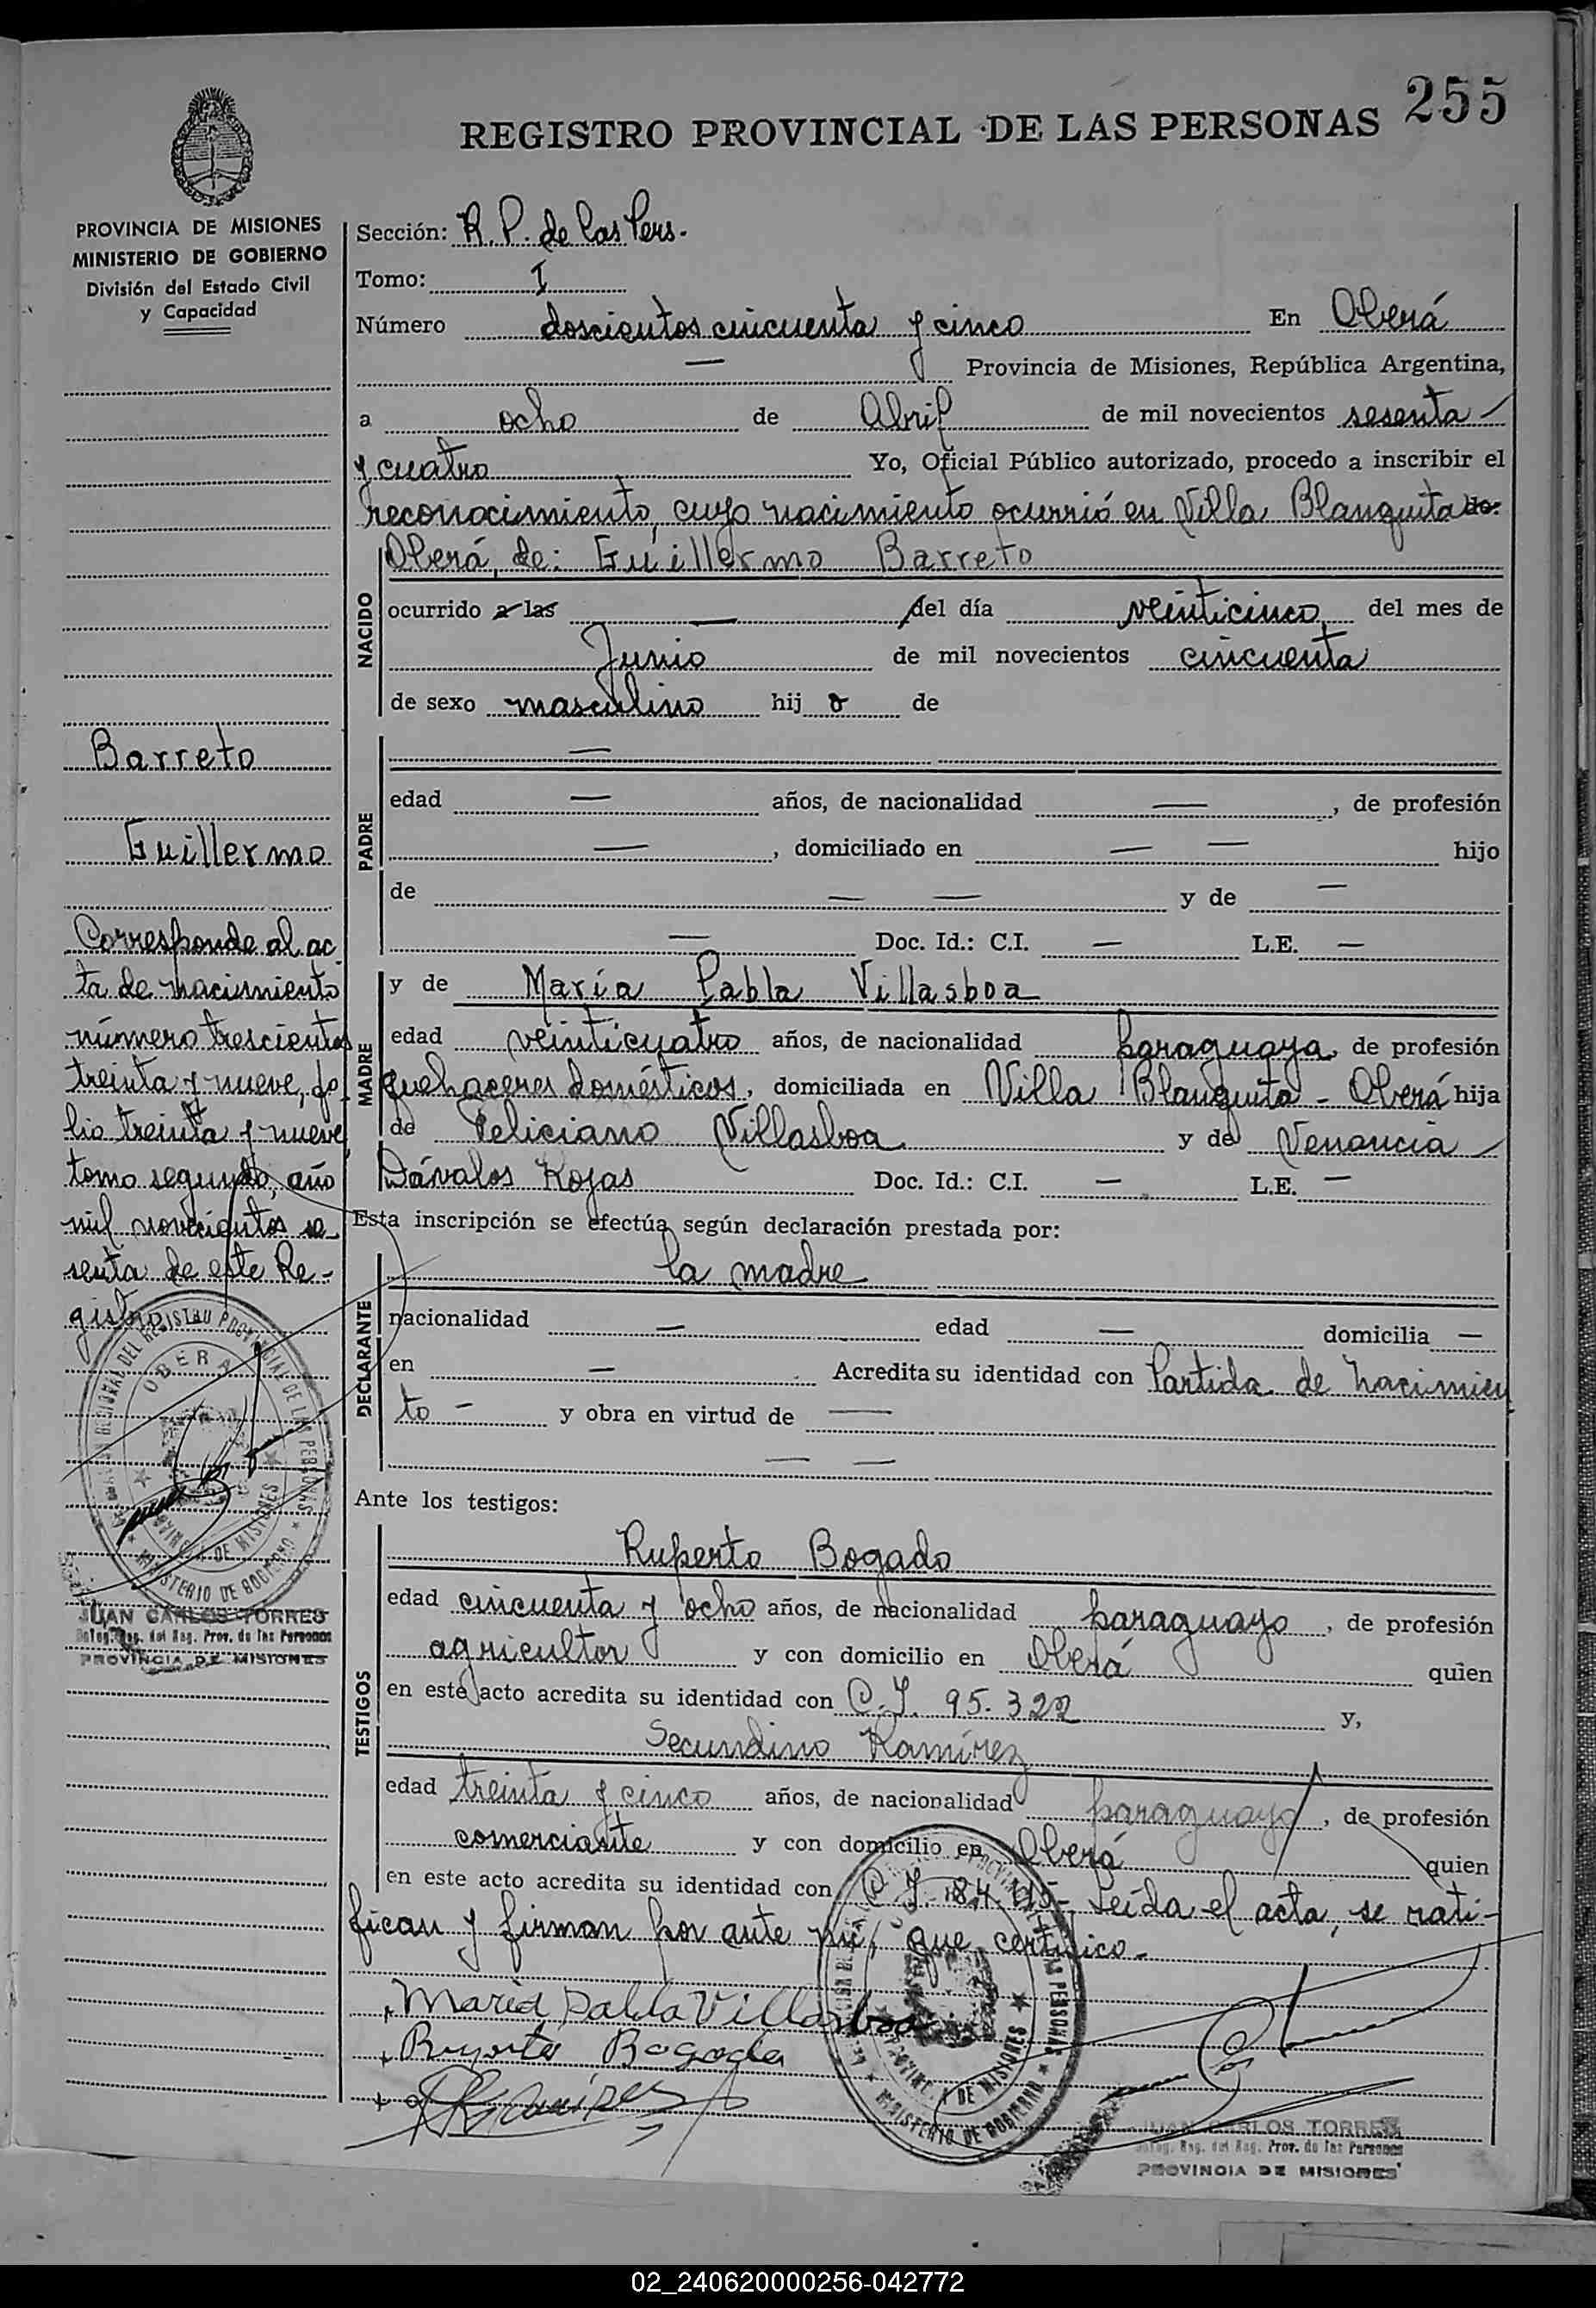 255
REGISTRO PROVINCIAL DE LAS PERSONAS
PROVINCIA DE MISIONES
MINISTERIO DE GOBIERNO
División del Estado Civil
y Capacidad
Barreto
Guillermo
Corresponde al ac
ta de nacimiento
número trescientos
treinta y nueve, fo
lio treinta y nueve,
tomo segundo, año
mil novecientos se
senta de este Re-
gistro
OBERA
PROVINCIA DE MISIONES
MINISTERIO DE GOBIERNO
JUAN CARLOS TORRES
Deleg. Reg. del Reg. Prov. de las Personas
PROVINCIA DE MISIONES
Sección: R. P. de las Pers.
Tomo: I
Número doscientos cincuenta y cinco En Oberá
— Provincia de Misiones, República Argentina,
a ocho de Abril de mil novecientos sesenta
y cuatro Yo, Oficial Público autorizado, procedo a inscribir el
reconocimiento, cuyo nacimiento ocurrió en Villa Blanquita
Oberá, de: Guillermo Barreto
NACIDO
ocurrido a las — del día veinticinco del mes de
Junio de mil novecientos cincuenta
de sexo masculino hij o de
PADRE
—
edad — años, de nacionalidad —, de profesión
—, domiciliado en — — hijo
de — — y de —
— Doc. Id.: C.I. — L.E. —
MADRE
y de María Pabla Villasboa
edad veinticuatro años, de nacionalidad paraguaya, de profesión
quehaceres domésticos, domiciliada en Villa Blanquita - Oberá hija
de Feliciano Villasboa y de Venancia
Dávalos Rojas Doc. Id.: C.I. — L.E. —
Esta inscripción se efectúa según declaración prestada por:
DECLARANTE
la madre
nacionalidad — edad — domicilia —
en — Acredita su identidad con Partida de nacimien
to - y obra en virtud de —
— —
Ante los testigos:
TESTIGOS
Ruperto Bogado
edad cincuenta y ocho años, de nacionalidad paraguayo, de profesión
agricultor y con domicilio en Oberá quien
en este acto acredita su identidad con C.I. 95.322 y,
Secundino Ramírez
edad treinta y cinco años, de nacionalidad paraguayo, de profesión
comerciante y con domicilio en Oberá quien
en este acto acredita su identidad con C.I. 84. Leída el acta, se rati-
fican y firman por ante mí, que certifico.-
Maria Pabla Villasboa
Ruperto Bogado
Ramirez
PROVINCIA DE MISIONES
MINISTERIO DE GOBIERNO
JUAN CARLOS TORRES
Deleg. Reg. del Reg. Prov. de las Personas
PROVINCIA DE MISIONES
02_240620000256-042772